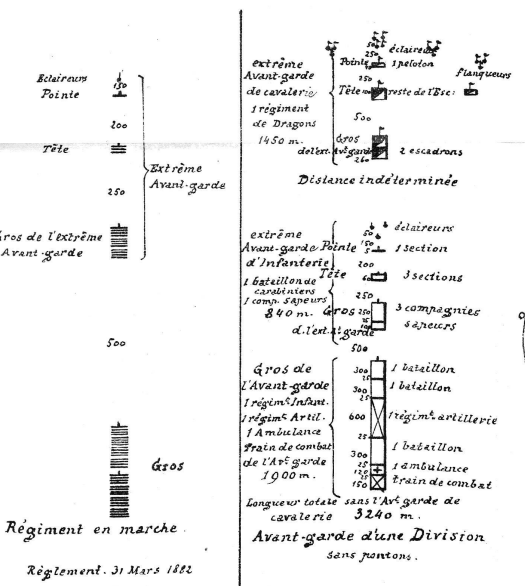 Eclaireurs
150
Pointe
200
Tête
Extrême
Avant-garde
250
Gros de l'extrême
Avant-garde
500
Gros
Régiment en marche.
Règlement. 31 Mars 1882
extrême
Avant-garde
de cavalerie
1 régiment
de Dragons
1450 m.
50
250
éclaireurs
Pointe
1 peloton
flanqueurs
250
Tête
reste de l'Esc:
500
Gros
de l'ext. Av. garde
2 escadrons
260
Distance indéterminée
extrême
Avant-garde
d'Infanterie
1 bataillon de
carabiniers
1 comp. sapeurs
840 m.
50
éclaireurs
150
Pointe
5
1 section
200
Tête
60
3 sections
250
Gros
250
3 compagnies
25
sapeurs
d. l'ext. a. garde
500
Gros de
l'Avant-garde
1 régim.t Infant.
1 régim.t Artil.
1 Ambulance
train de combat
de l'Av.t garde
1900 m.
300
1 bataillon
25
300
1 bataillon
25
600
1 régim.t artillerie
25
300
1 bataillon
25
120
1 ambulance
25
150
train de combat
Longueur totale sans l'Av.t garde de
cavalerie 3240 m.
Avant-garde d'une Division
sans pontons.